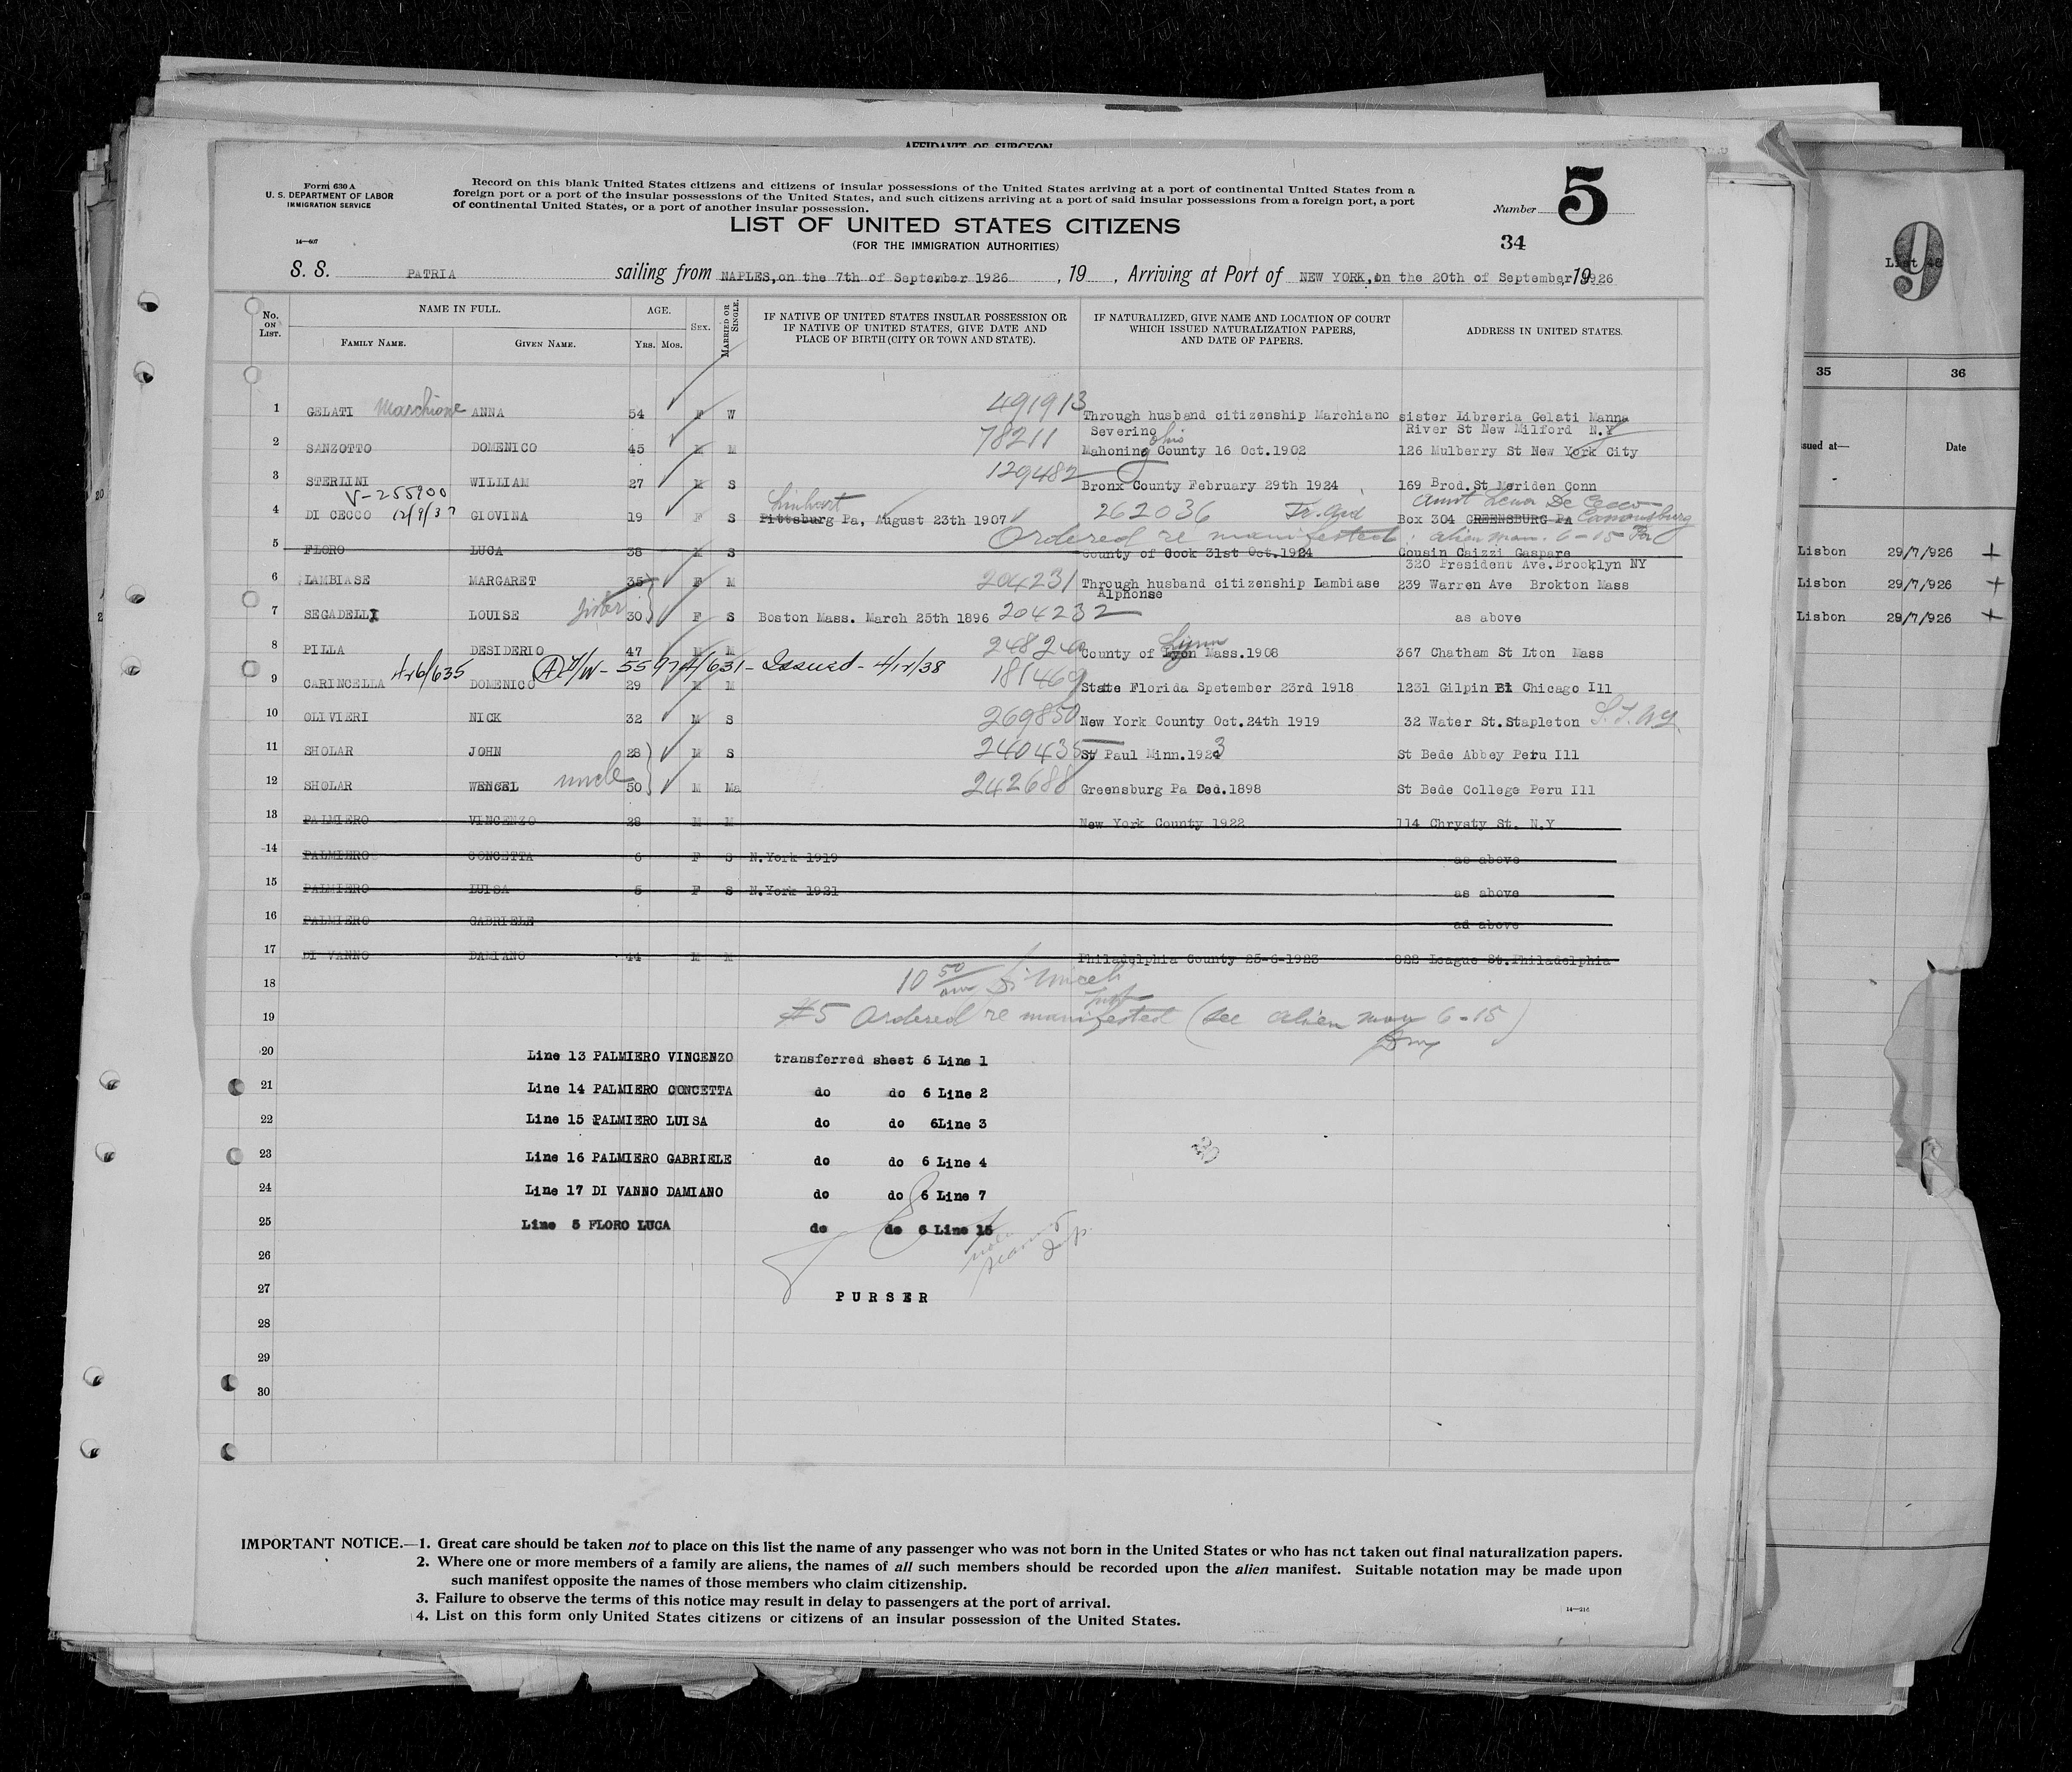 AFFIDAVIT OF SURGEON
Form 630 A
U. S. DEPARTMENT OF LABOR
IMMIGRATION SERVICE
14—607
Record on this blank United States citizens and citizens of insular possessions of the United States arriving at a port of continental United States from a
foreign port or a port of the insular possessions of the United States, and such citizens arriving at a port of said insular possessions from a foreign port, a port
of continental United States, or a port of another insular possession.
LIST OF UNITED STATES CITIZENS
(FOR THE IMMIGRATION AUTHORITIES)
Number 5
34
S. S. PATRIA sailing from NAPLES, on the 7th of September 1926, 19 , Arriving at Port of NEW YORK, on the 20th of September 19 1926
No. ON LIST. NAME IN FULL. FAMILY NAME. GIVEN NAME. AGE. Yrs. Mos. SEX. MARRIED OR SINGLE. IF NATIVE OF UNITED STATES INSULAR POSSESSION OR IF NATIVE OF UNITED STATES, GIVE DATE AND PLACE OF BIRTH (CITY OR TOWN AND STATE). IF NATURALIZED, GIVE NAME AND LOCATION OF COURT WHICH ISSUED NATURALIZATION PAPERS, AND DATE OF PAPERS. ADDRESS IN UNITED STATES.
1 GELATI Marchione ANNA 54 F W 491913 Through husband citizenship Marchiano sister Libreria Gelati Manna
Severino River St New Milford N.Y
2 SANZOTTO DOMENICO 45 M M 78211 Mahoning County 16 Oct.1902 Ohio 126 Mulberry St New York City
3 STERLINI WILLIAM 27 M S 129482 Bronx County February 29th 1924 169 Brod.St Meriden Conn
V-255900 12/9/37
4 DI CECCO GIOVINA 19 F S Pittsburg Pa, August 23th 1907 262036 Box 304 GREENSBURG PA Canonsburg
Ordered re manifested alien man. 6-15
5 FLORO LUCA 38 M S County of Cook 31st Oct.1924 Cousin Caizzi Gaspare
320 President Ave.Brooklyn NY
6 LAMBIASE MARGARET 35 F M 204231 Through husband citizenship Lambiase 239 Warren Ave Brokton Mass
Alphonse
7 SEGADELLI LOUISE sister 30 F S Boston Mass. March 25th 1896 204232 as above
8 PILLA DESIDERIO 47 M M County of Lyon Lynn Mass.1908 367 Chatham St Lton Mass
Issued - 4/12/38
9 CARINCELLA DOMENICO 29 M M 181469 State Florida Spetember 23rd 1918 1231 Gilpin Chicago Ill
10 OLIVIERI NICK 32 M S 269850 New York County Oct.24th 1919 32 Water St.Stapleton
11 SHOLAR JOHN 28 M S 240435 St Paul Minn.1923 St Bede Abbey Peru Ill
12 SHOLAR WENCEL uncle 50 M Ma 242688 Greensburg Pa Ded.1898 St Bede College Peru Ill
13 PALMIERO VINCENZO 28 M M New York County 1922 114 Chrysty St. N.Y
14 PALMIERO CONCETTA 6 F S N.York 1919 as above
15 PALMIERO LUISA 5 F S N.York 1921 as above
16 PALMIERO GABRIELE ad above
17 DI VANNO DAMIANO 44 M M Philadelphia County 25-6-1923 822 League St.Philadelphia
18 10 50 am
19 #5 Ordered re manifested (see alien man 6-15)
20 Line 13 PALMIERO VINCENZO transferred sheet 6 Line 1
21 Line 14 PALMIERO CONCETTA do do 6 Line 2
22 Line 15 PALMIERO LUISA do do 6Line 3
23 Line 16 PALMIERO GABRIELE do do 6 Line 4
24 Line 17 DI VANNO DAMIANO do do 6 Line 7
25 Line 5 FLORO LUCA do do 6 Line 15
26
27 PURSER
28
29
30
IMPORTANT NOTICE.—1. Great care should be taken not to place on this list the name of any passenger who was not born in the United States or who has not taken out final naturalization papers.
2. Where one or more members of a family are aliens, the names of all such members should be recorded upon the alien manifest. Suitable notation may be made upon
such manifest opposite the names of those members who claim citizenship.
3. Failure to observe the terms of this notice may result in delay to passengers at the port of arrival.
4. List on this form only United States citizens or citizens of an insular possession of the United States.
9
35 36
Date
Lisbon 29/7/926 +
Lisbon 29/7/926 +
Lisbon 29/7/926 +